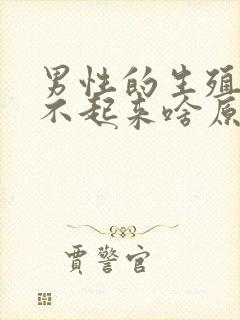 男性的生殖
不起来啥原
贾警官